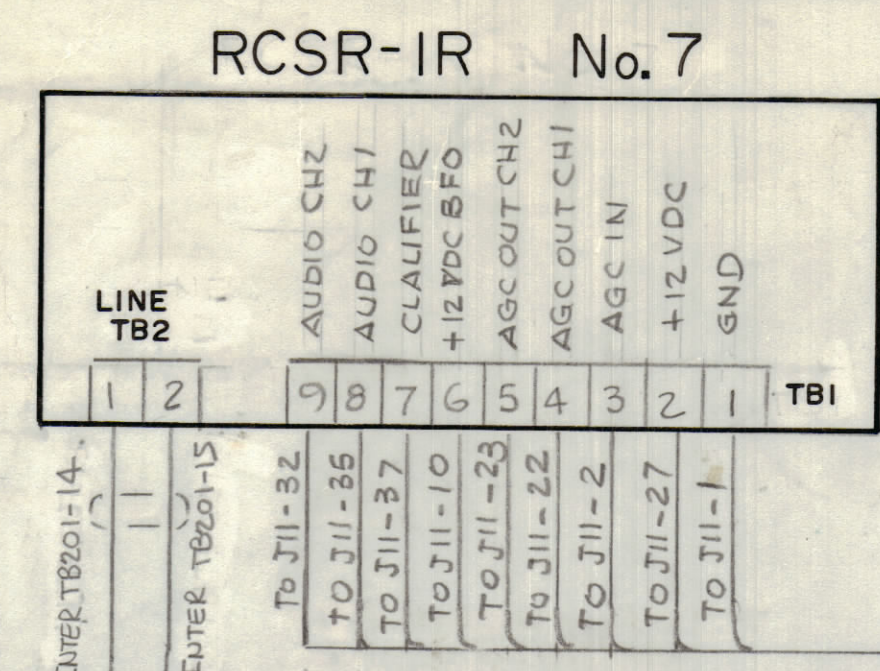 RCSR-1R No. 7
AUDIO CH2
AUDIO CH1
CLALIFIER
+12 VDC BFO
AGC OUT CH2
AGC OUT CH1
AGC IN
+12 VDC
GND
LINE
TB2
1 2
9 8 7 6 5 4 3 2 1 TB1
ENTER TB201-14
ENTER TB201-15
TO J11-32
TO J11-35
TO J11-37
TO J11-10
TO J11-23
TO J11-22
TO J11-2
TO J11-27
TO J11-1